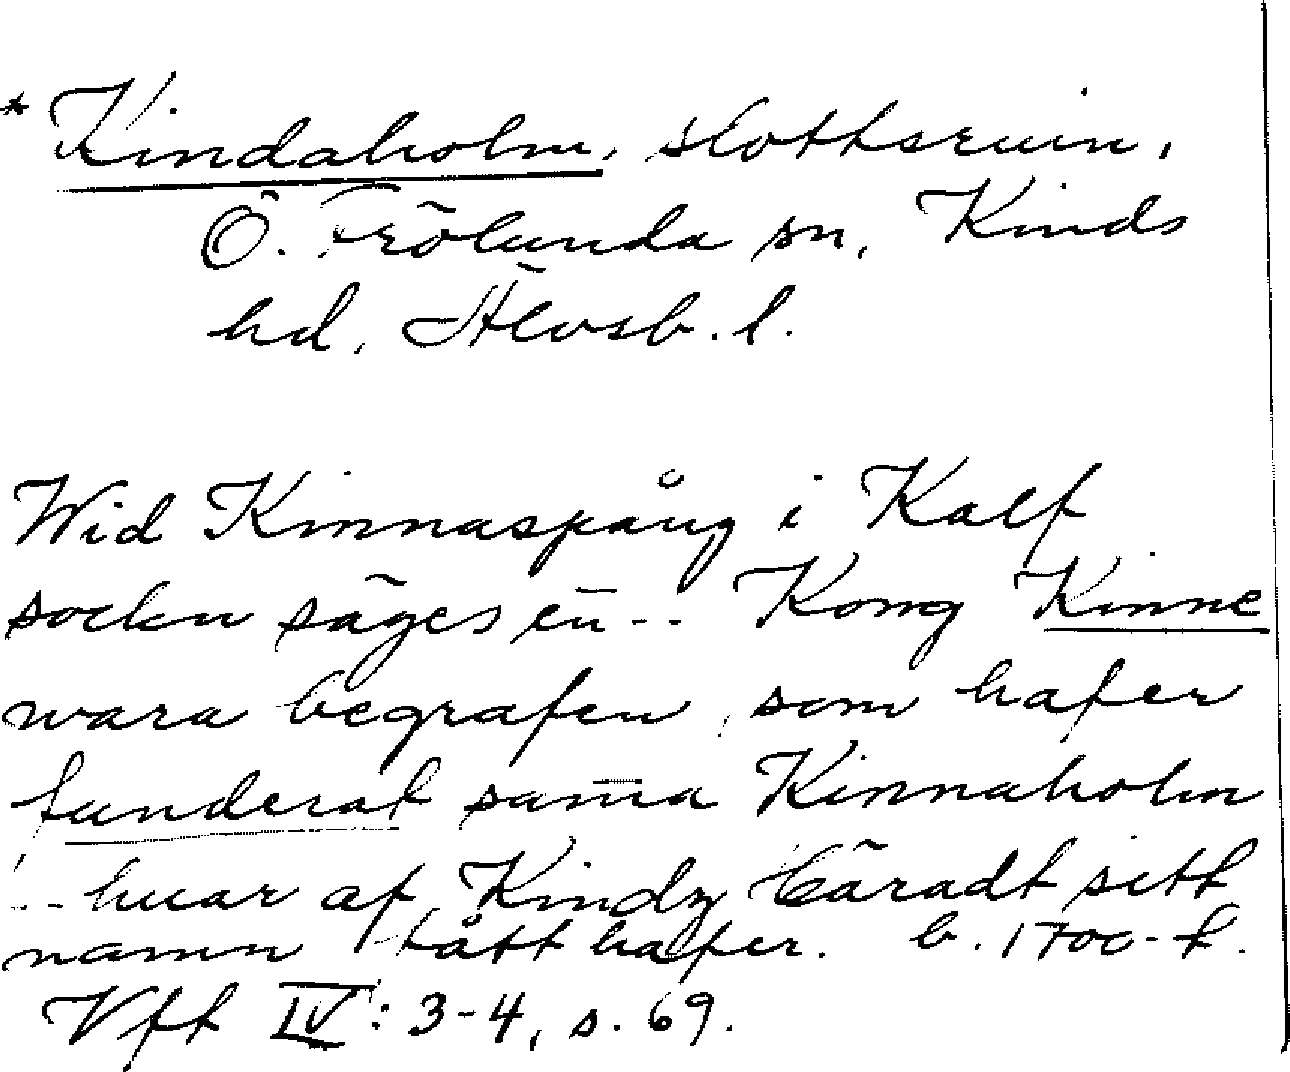 * Kindaholm, slottsruin,
Ö. Frölunda sn, Kinds
hd, Älvsb. l.
Wid Kinnaspång i Kalf
sockn säges en -- Kong Kinne
wara begrafen, som hafer
funderat sam̄a Kinnaholm
-- huar af Kindz häradt sitt
namn fått hafer. b. 1700-t.
Vft IV: 3-4, s. 69.